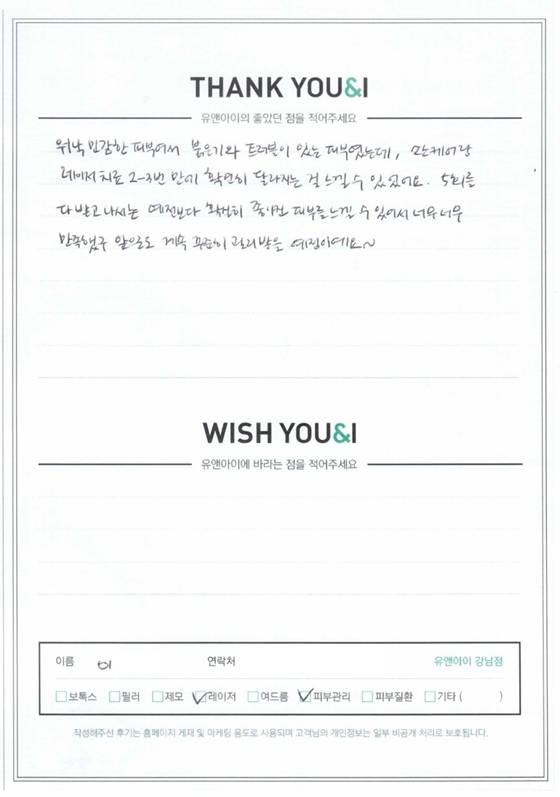 THANK YOU&I
유앤아이의 좋았던 점을 적어주세요
워낙 민감한 피부여서 붉은기와 트러블이 있는 피부였는데,
레이저치료 2-3번 만에 확연히 달라지는 걸 느낄 수 있었어요. 5회를
다 받고 나서는 예전보다 확연히 좋아진 피부를 느낄 수 있어서 너무너무
만족했구 앞으로도 계속 꾸준히 관리받을 예정이에요~
WISH YOU&I
유앤아이에 바라는 점을 적어주세요
이름 이 연락처 유앤아이 강남점
보톡스 필러 제모 레이저 여드름 피부관리 피부질환 기타 ( )
작성해주신 후기는 홈페이지 게재 및 마케팅 용도로 사용되며 고객님의 개인정보는 일부 비공개 처리로 보호됩니다.